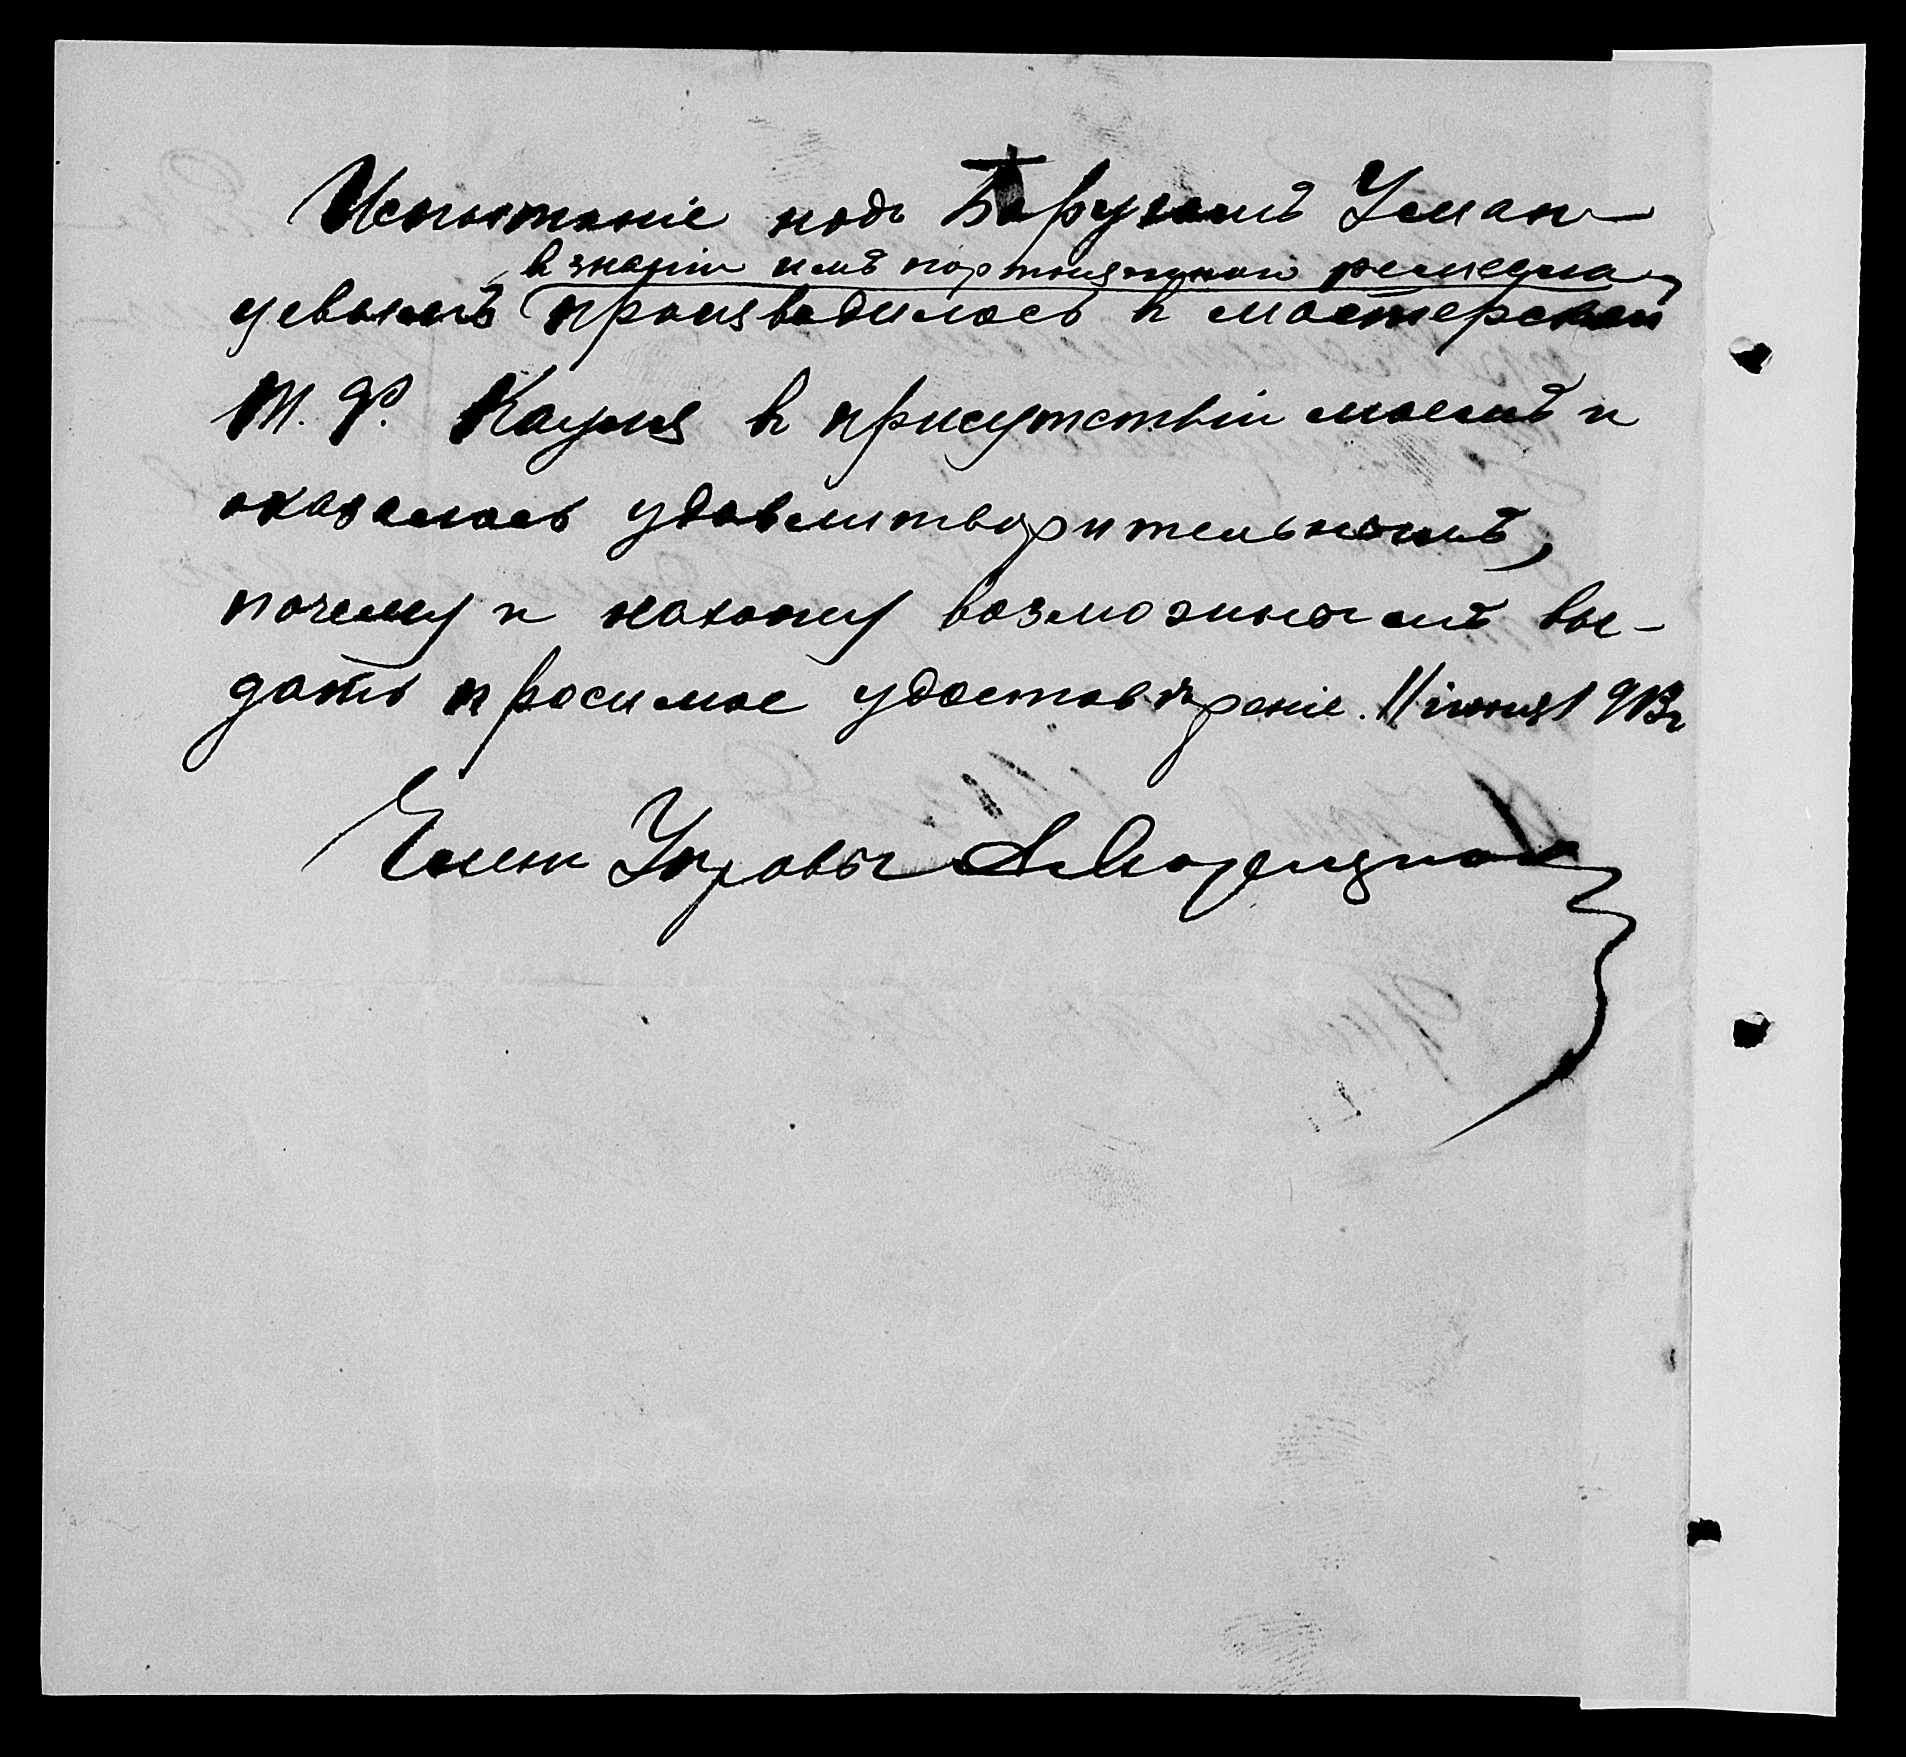 Испытаніе надъ Барухомъ Уман-
в знаніи имъ портняжнаго ремесла
цевымъ производилось в мастерской
Т. Ф. Кауля в присутствіи моемъ и
оказалось удовлитворительнымъ,
почему и нахожу возможнымъ вы-
дать просимое удостовѣреніе. 11 іюня 1913 г
Членъ Управы